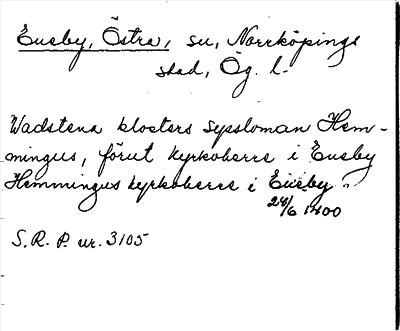 Eneby, Östra, su, Norrköpings
stad, Ög. l.
Wadstena klosters syssloman Hem-
mingus, förut kyrkoherre i Eneby
Hemmingus kyrkoherre i Eneby
24/6 1400
S.R.P. nr. 3105